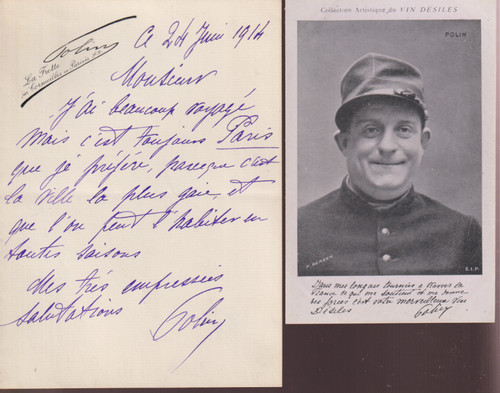 Polin
La Frette
Ce 24 Juin 1914
Monsieur
J'ai beaucoup voyagé
mais c'est toujours Paris
que je préfère, parceque c'est
la ville la plus gaie, et
que l'on peut l'habiter en
toutes saisons
Mes très empressées
salutations
Polin
Collection Artistique du VIN DESILES
POLIN
S.I.P.
Dans mes longues tournées à travers la
France ce qui me soutient et me donne
des forces c'est votre merveilleux Vin
Désiles Polin